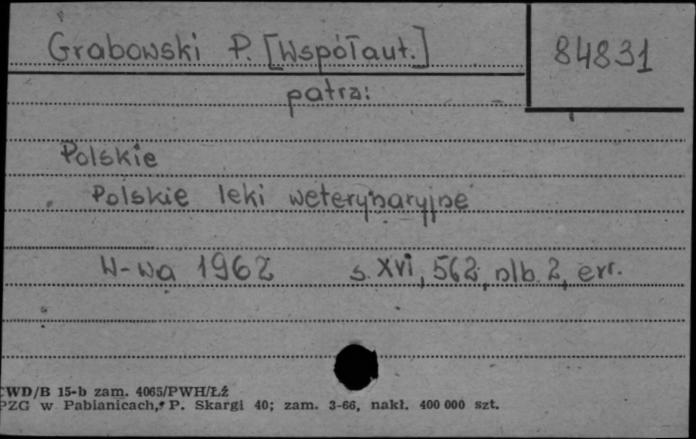 Grabowski P. [Współaut.]
84831
patrz:
Polskie
Polskie leki weterynaryjne
W-wa 1962 s. XVI, 562, nlb. 2, err.
CWD/B 15-b zam. 4065/PWH/Łź
PZG w Pabianicach, P. Skargi 40; zam. 3-66, nakł. 400 000 szt.